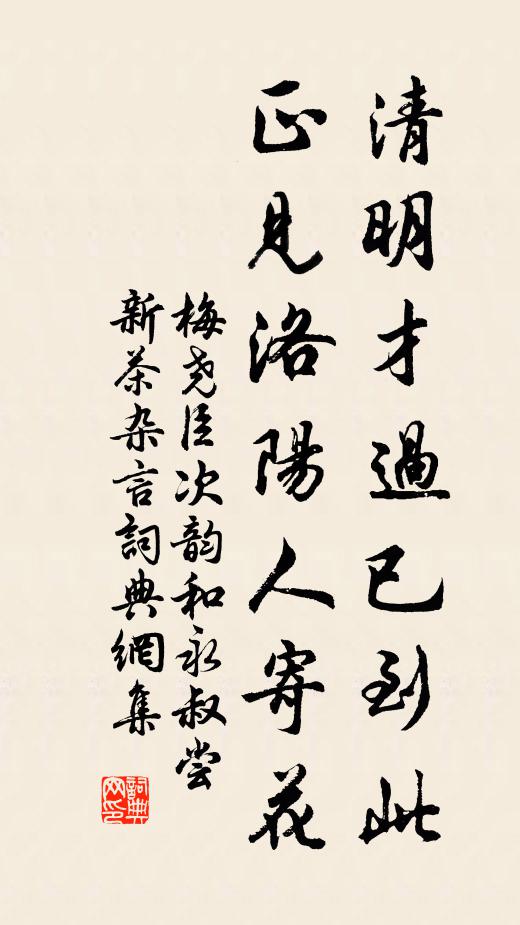 清明才過已到此
正見洛陽人寄花
梅尧臣次韵和永叔尝
新茶杂言詞典網集
詞典
网印